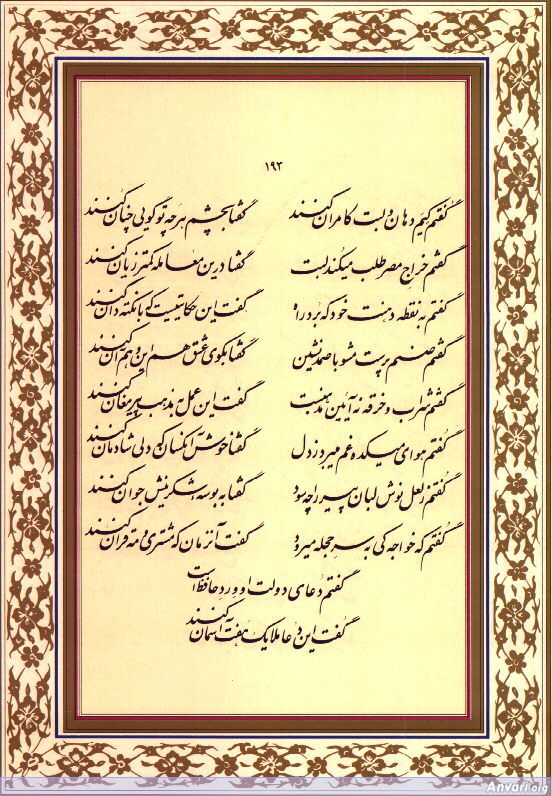 ۱۹۳
گفتم کیم دهان و لبت کامران کنند گفتا بچشم هر چه تو گویی چنان کنند
گفتم خراج مصر طلب میکند لبت گفتا درین معامله کمتر زیان کنند
گفتم به نقطه دهنت خود که برد راه گفت این حکایتیست که با نکته دان کنند
گفتم صنم پرست مشو با صمد نشین گفتا بکوی عشق هم این و هم آن کنند
گفتم شراب و خرقه نه آئین مذهبست گفت این عمل به مذهب پیر مغان کنند
گفتم هوای میکده غم میبرد ز دل گفتا خوش آنکسان که دلی شادمان کنند
گفتم ز لعل نوش لبان پیر را چه سود گفتا به بوسه شکرینش جوان کنند
گفتم که خواجه کی به سر حجله میرود گفت آنزمان که مشتری و مه قران کنند
گفتم دعای دولت او ورد حافظ است
گفت این دعا ملایک هفت آسمان کنند
Anvari.org